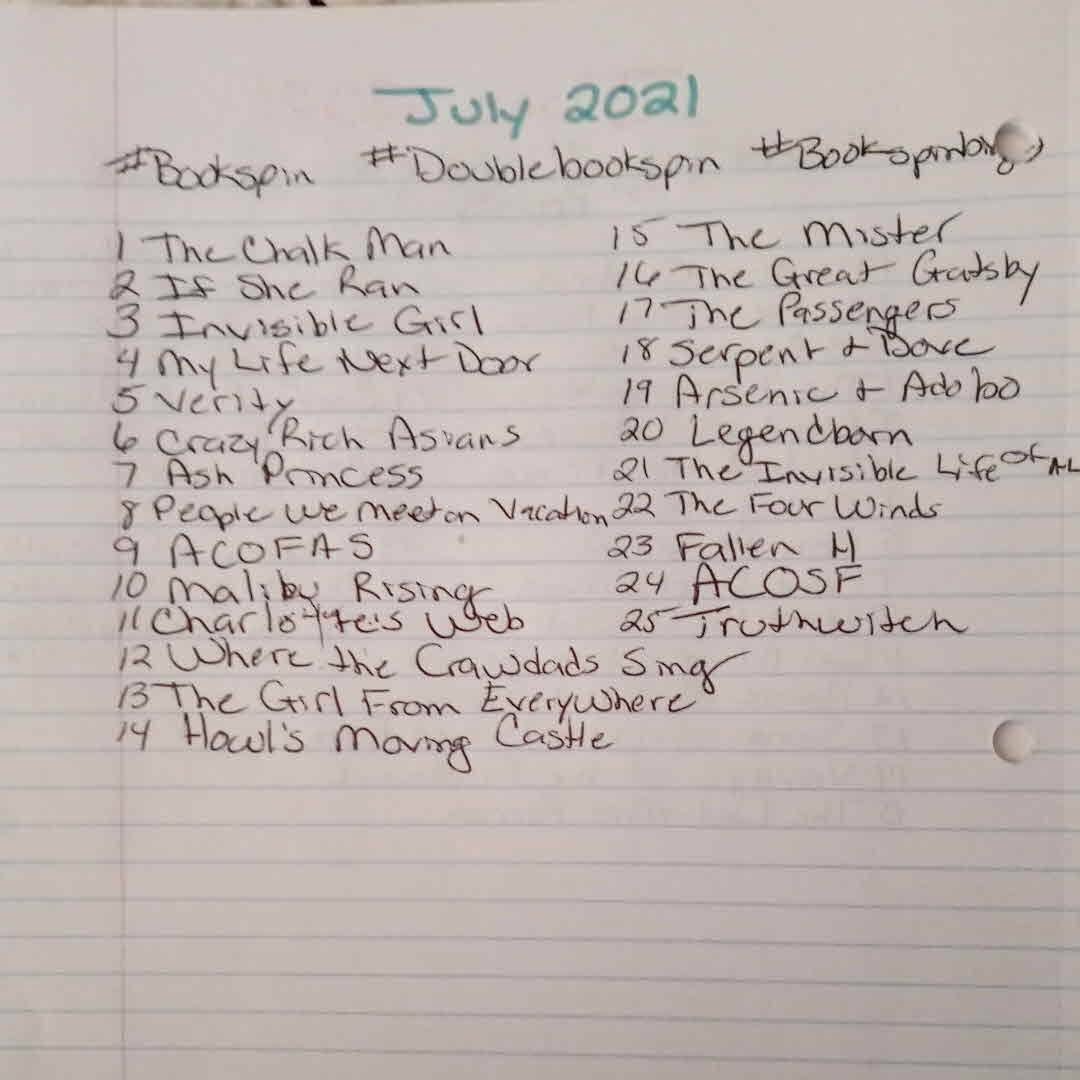 July 2021
#Bookspin #Doublebookspin #Bookspinbingo
1 The Chalk Man
2 If She Ran
3 Invisible Girl
4 My Life Next Door
5 Verity
6 Crazy Rich Asians
7 Ash Princess
8 People we meet on Vacation
9 ACOFAS
10 Maliby Rising
11 Charlotte's Web
12 Where the Crawdads Sing
13 The Girl From Everywhere
14 Howl's Moving Castle
15 The Mister
16 The Great Gatsby
17 The Passengers
18 Serpent & Dove
19 Arsenic & Adobo
20 Legendborn
21 The Invisible Life of AL
22 The Four Winds
23 Fallen H
24 ACOSF
25 Truthwitch